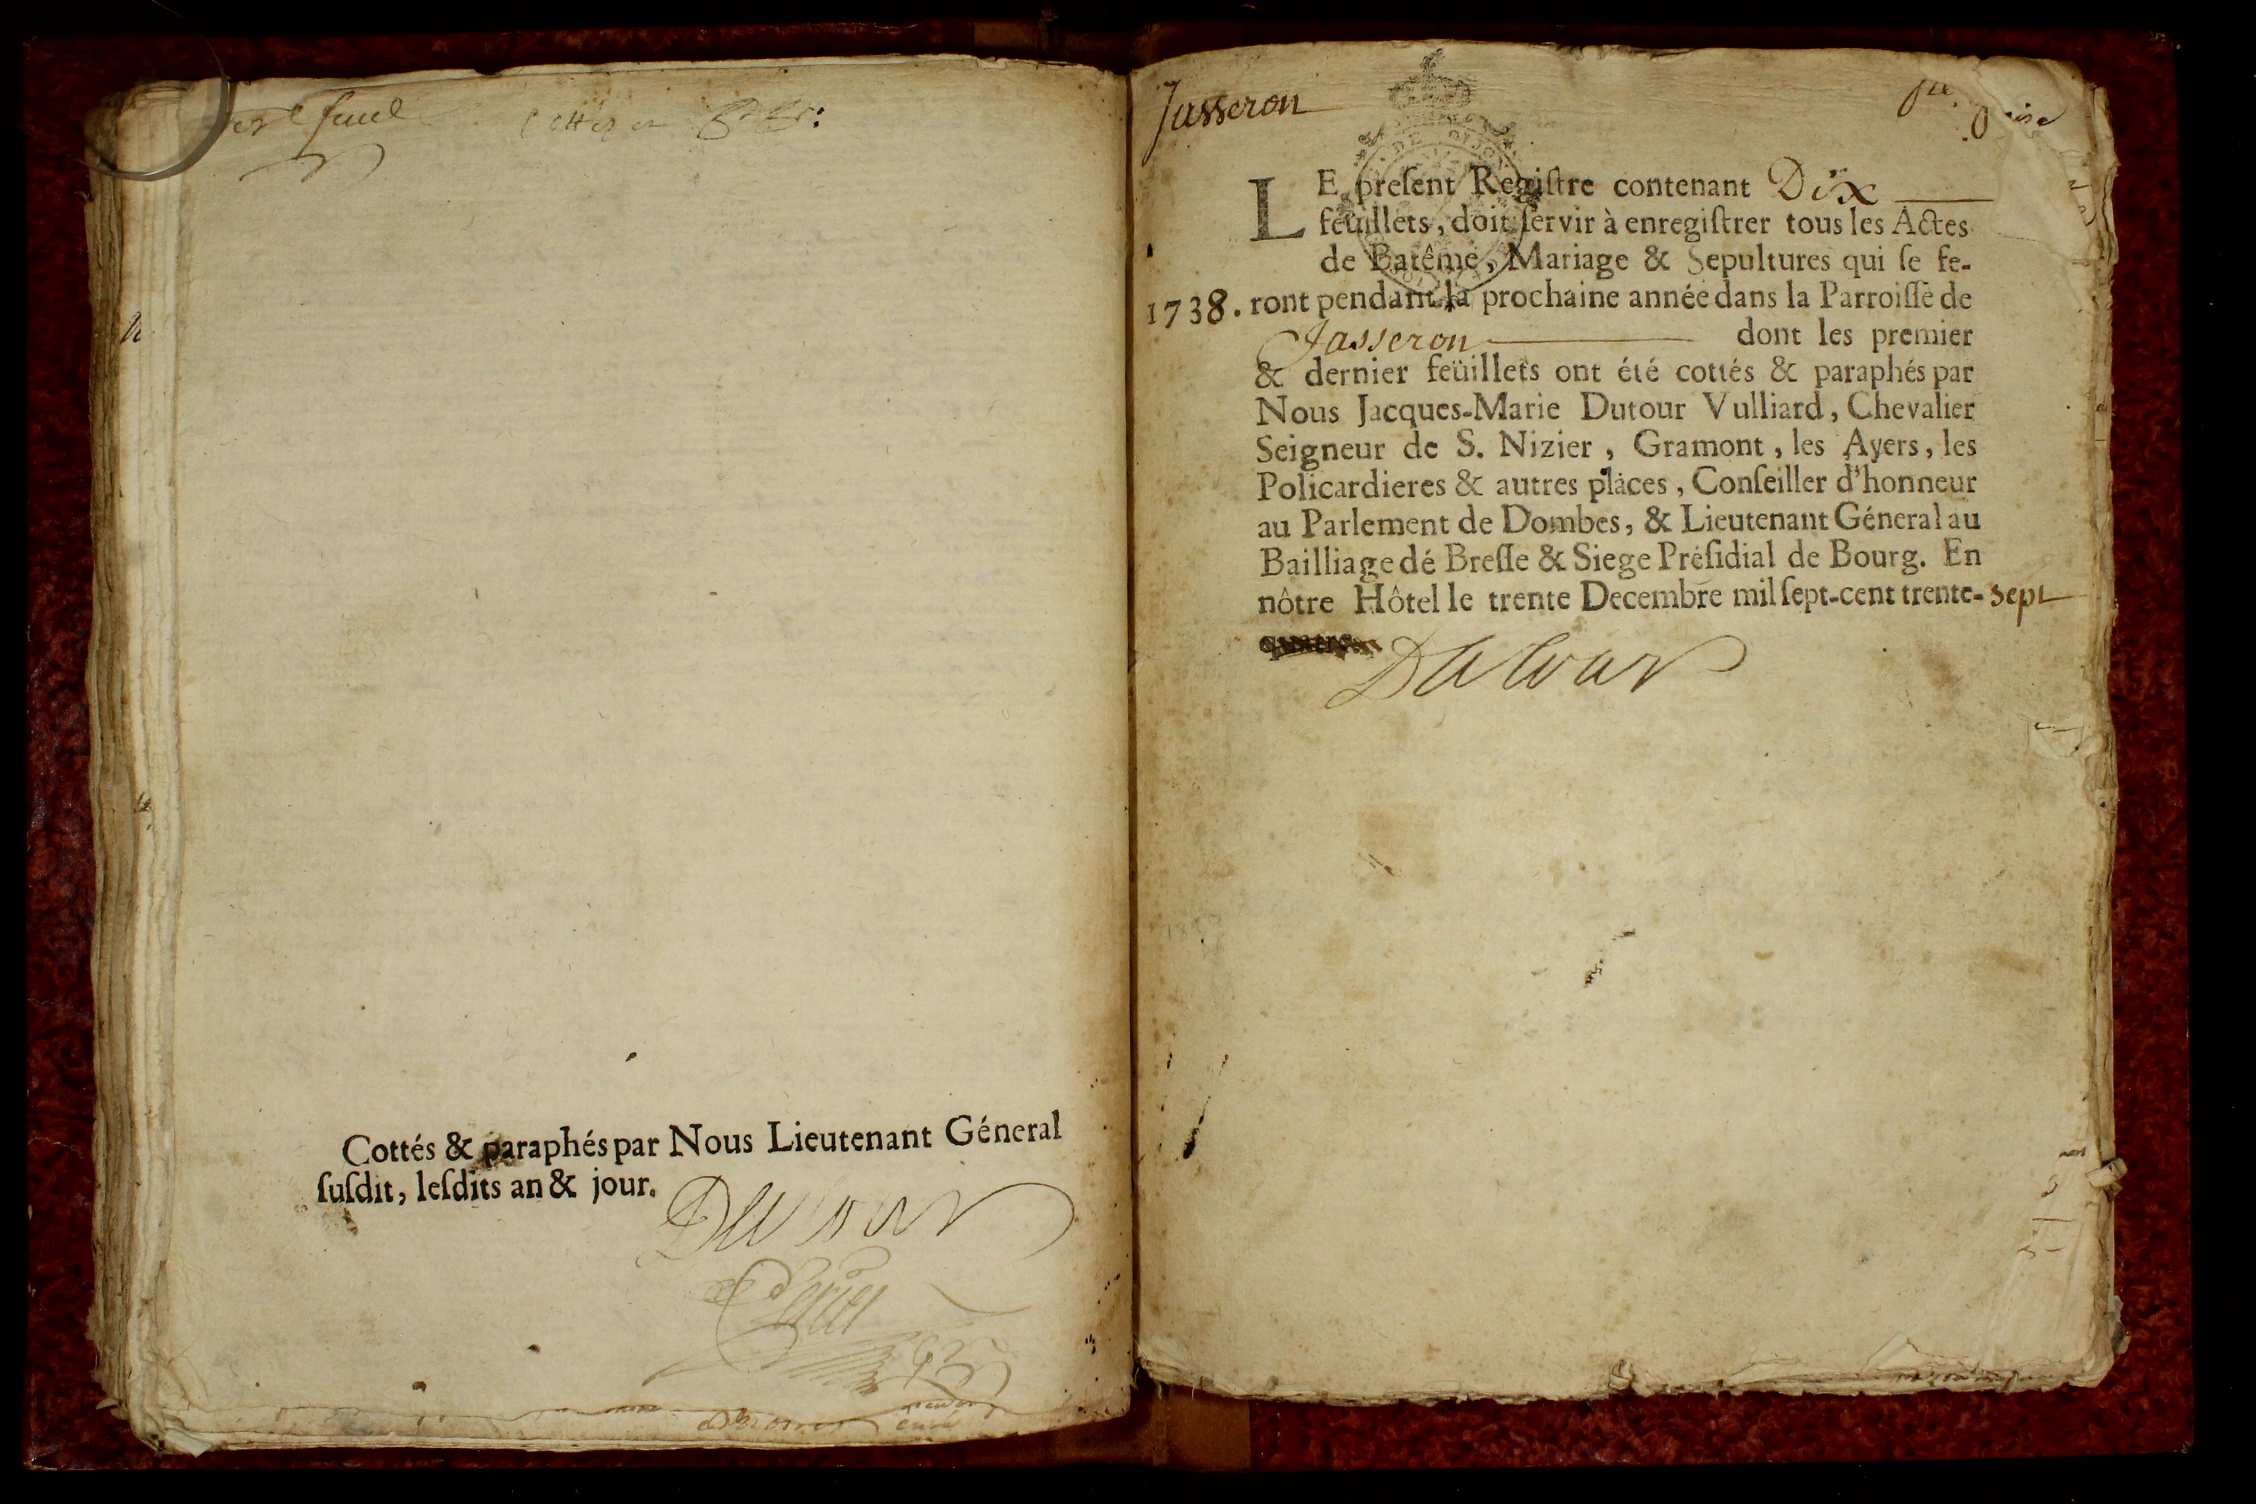 Cottés & paraphés par Nous Lieutenant Géneral
ſuſdit, leſdits an & jour.
Dutour
Jasseron
LE preſent Regiſtre contenant Dix
feüillets, doit ſervir à enregiſtrer tous les Actes
de Batême, Mariage & Sepultures qui ſe fe-
1738. ront pendant la prochaine année dans la Parroiſſe de
Jasseron dont les premier
& dernier feüillets ont été cottés & paraphés par
Nous Jacques-Marie Dutour Vulliard, Chevalier
Seigneur de S. Nizier, Gramont, les Ayers, les
Policardieres & autres places, Conſeiller d'honneur
au Parlement de Dombes, & Lieutenant Géneral au
Bailliage dé Breſſe & Siege Préſidial de Bourg. En
nôtre Hôtel le trente Decembre mil ſept-cent trente-sept
quatre.
Dutour